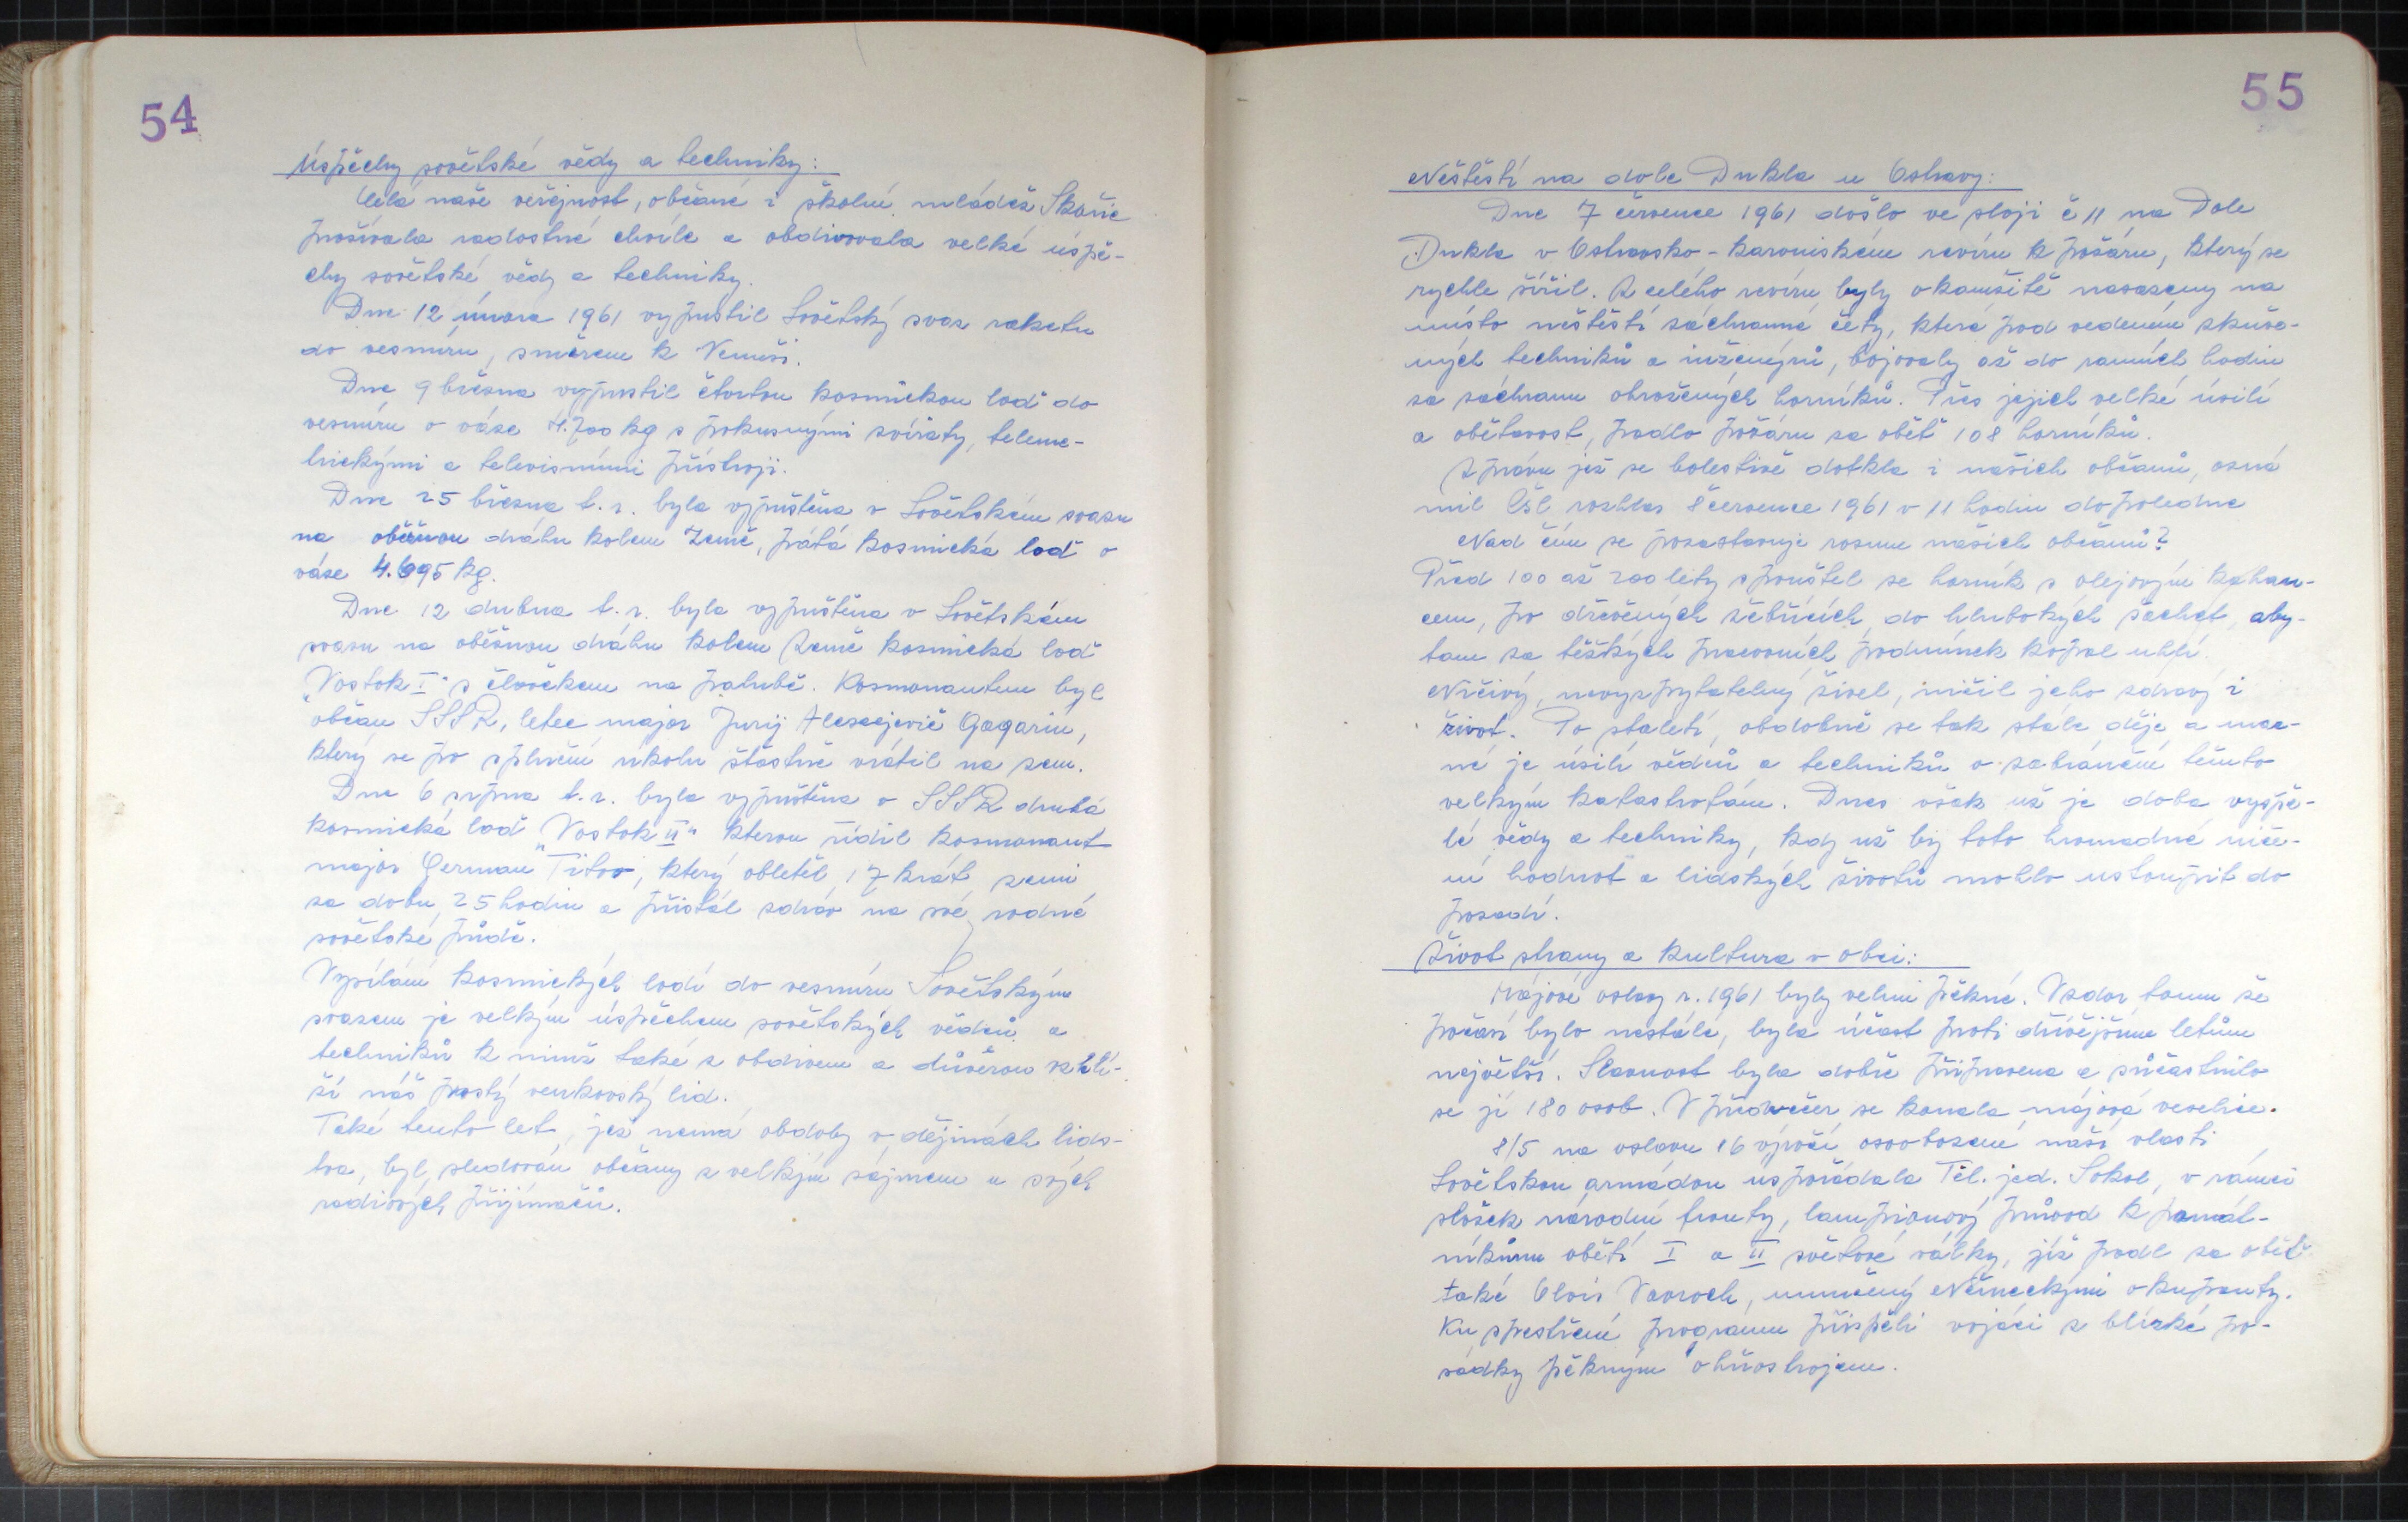 54
Úspěchy sovětské vědy a techniky:
Celá naše veřejnost, občané i školní mládež Skořic
prožívala radostné chvíle a obdivovala velké úspě-
chy sovětské vědy a techniky.
Dne 12 února 1961 vypustil Sovětský svaz raketu
do vesmíru, směrem k Venuši.
Dne 9 března vypustil čtvrtou kosmickou loď do
vesmíru o váze 4.700 kg s pokusnými zvířaty, teleme-
trickými a televisními přístroji.
Dne 25 března t.r. byla vypuštěna v Sovětském svazu
na oběžnou dráhu kolem Země, pátá kosmická loď o
váze 4.695 kg.
Dne 12 dubna t.r. byla vypuštěna v Sovětském
svazu na oběžnou dráhu kolem Země kosmická loď
„Vostok I" s člověkem na palubě. Kosmonautem byl
občan SSSR, letec major Jurij Alexejevič Gagarin,
který se po splnění úkolu šťastně vrátil na zem.
Dne 6 srpna t.r. byla vypuštěna v SSSR druhá
kosmická loď „Vostok II" kterou řídil kosmonaut
major German Titov, který obletěl 17 krát zemi
za dobu 25 hodin a přistál zdráv na své rodné
sovětské půdě.
Vysílání kosmických lodí do vesmíru Sovětským
svazem je velkým úspěchem sovětských vědců a
techniků k nimž také s obdivem a důvěrou vzhlí-
ží náš prostý venkovský lid.
Také tento let, jež nemá obdoby v dějinách lids-
tva, byl sledován občany s velkým zájmem u svých
radiových přijímačů.
55
Neštěstí na dole Dukla u Ostravy:
Dne 7 července 1961 došlo ve sloji č 11 na Dole
Dukla v Ostravsko-karviniském revíru k požáru, který se
rychle šířil. Z celého revíru byly okamžitě nasazeny na
místo neštěstí záchranné čety, které pod vedením zkuše-
ných techniků a inženýrů, bojovaly až do ranních hodin
za záchranu ohrožených horníků. Přes jejich velké úsilí
a obětavost, padlo požáru za oběť 108 horníků.
Zprávu jež se bolestivě dotkla i našich občanů, ozná
mil Čsl rozhlas 8 července 1961 v 11 hodin dopoledne
Nad čím se pozastavuje rozum našich občanů?
Před 100 až 200 lety spouštěl se horník s olejovým kahan-
cem, po dřevěných žebřících do hlubokých šachet, aby-
tam za těžkých pracovních podmínek kopal uhlí.
Ničivý, nevyzpytatelný živel, ničil jeho zdraví i
život. Po staletí, obdobně se tak stále děje a mar-
né je úsilí vědců a techniků o zabránění těmto
velkým katastrofám. Dnes však už je doba vyspě-
lé vědy a techniky, kdy už by toto hromadné niče-
ní hodnot a lidských životů mohlo ustoupit do
pozadí.
Život strany a kultura v obci:
Májové oslavy r. 1961 byly velmi pěkné. Vzdor tomu že
počasí bylo nestálé, byla účast proti dřívějším letům
největší. Slavnost byla dobře připravena a zúčastnilo
se jí 180 osob. V předvečer se konala májová veselice.
8/5 na oslavu 16 výročí osvobození naší vlasti
Sovětskou armádou uspořádala Těl. jed. Sokol, v rámci
složek národní fronty, lampionový průvod k památ-
níkům obětí I a II světové války, jíž padl za oběť
také Alois Vavroch, umučený Německými okupanty.
Ku zpestření programu přispěli vojáci z blízké po-
sádky pěkným ohňostrojem.